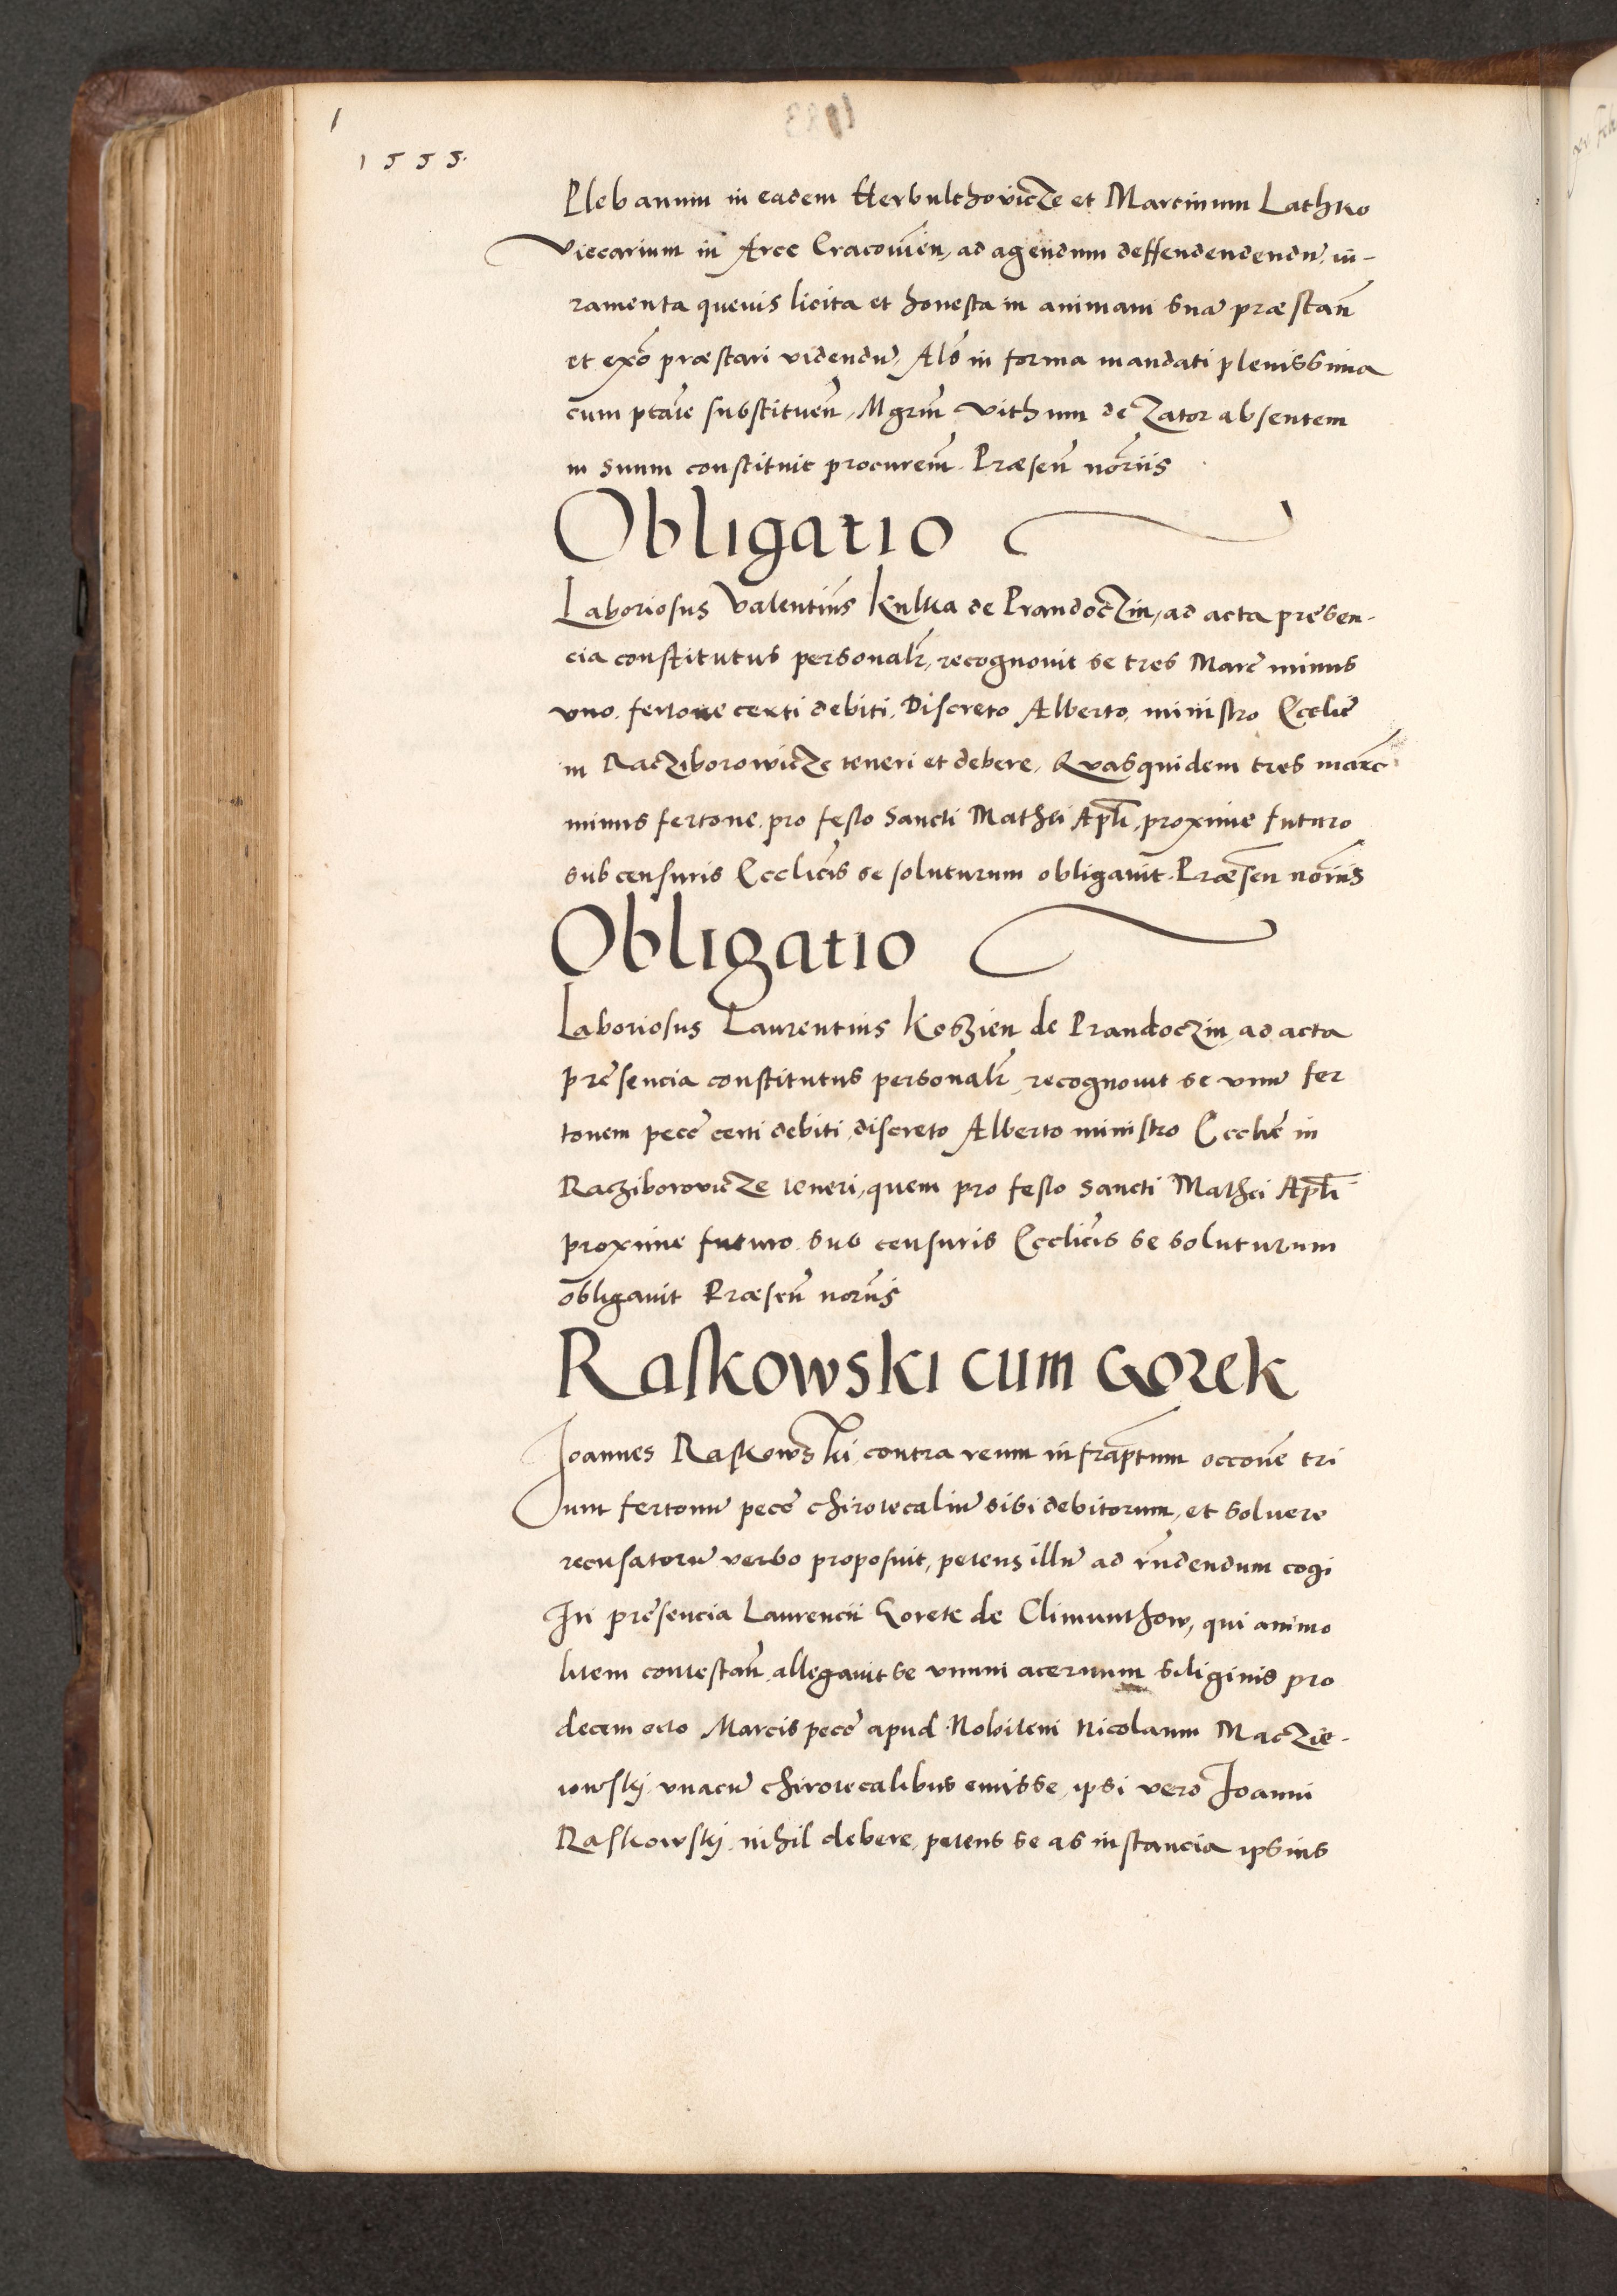 1
1555.
Plebanum in eadem Herbulthovicze et Martinum Lathko
Viccarium in Arce Cracovien̄, ad agendum deffendendendū, iu-
ramenta quevis licita et honesta in animam suā præstan̄
et exō præstari videndū, Alō in forma mandati plenissima
cum ptāte substituen̄, Mgrm̄ Vithum de Zator absentem
in suum constituit procurem̄. Præsen̄ norīis
Obligatio
Laboriosus Valentin̄s Kulka de Prandoczin, ad acta presen-
cia constitutus personalr̄, recognovit se tres Marc̄ minus
uno fertone certi debiti, Discreto Alberto, ministro Eccliē
in Racziborowicze teneri et debere, Quasquidem tres marc̄
minus fertone, pro festo Sancti Mathei Apli̅, proxime futuro
sub censuris Ecclicīs se soluturum obligavit. Præsen̄ norīis
Obligatio
Laboriosus Laurentius Koszien de Prandoczin, ad acta
presencia constitutus personalr̄, recognovit se unū fer
tonem pecc̄ certi debiti, discreto Alberto ministro Eccliē in
Racziborovicze teneri, quem pro festo Sancti Mathei Apli̅
proxime futuro, sub censuris Ecclicīs se soluturum
obligavit Præsen̄ norīis
Raskowski cum Gorek
Joannes Raskowski, contra reum infrap̄tum occōne tri
um fertonū pecc̄ chirotecaliū sibi debitorum, et solvere
recusatorū verbo proposuit, petens illū ad rn̄dendum cogi
In presencia Laurencii Gorek de Climunthow, qui animo
litem contestan̄, allegavit se unum acervum siliginis pro
decem octo Marcis pecc̄ apud Nobilem Nicolaum Maczie-
iowskj, unacū chirotecalibus emisse, ipsi vero Joanni
Raskowskj, nihil debere, petens se ab instancia ipsius